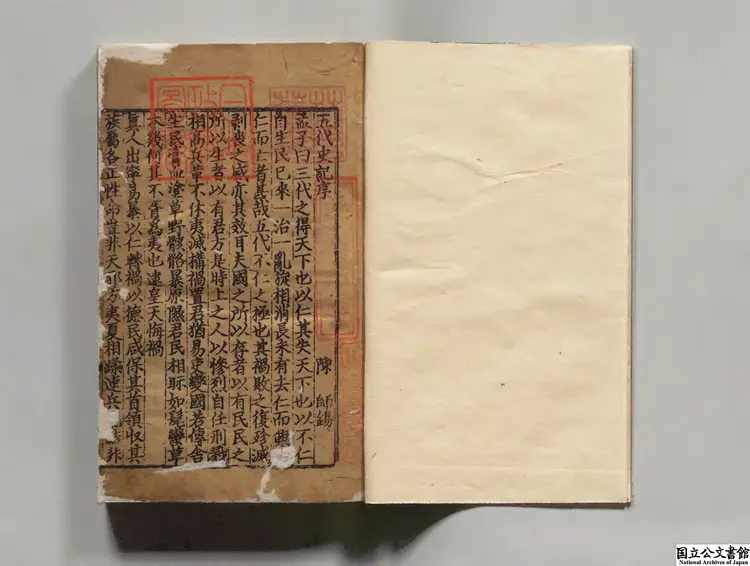 五代史記序 陳師錫
孟子曰三代之得天下也以仁其失天下也以不仁
自生民已來一治一亂旋相消長未有去仁而興
仁而亡者甚哉五代不仁之極也其禍敗之復殄滅
剥喪之威亦其效耳夫國之所以存者以有民民之
所以生者以有君方是時上之人以慘烈自任刑戮
相高兵革不休夷滅構禍置君猶易吏變國若傳舍
生民膏血塗草野骸骼暴原隰君民相眎如髦蠻草
木幾何其不胥為夷也逮皇天悔禍
真人出寧易暴以仁轉禍以德民咸保其首領収其
族屬各正性命豈非天邪方夷夏相蹂連兵非
国立公文書館
National Archives of Japan